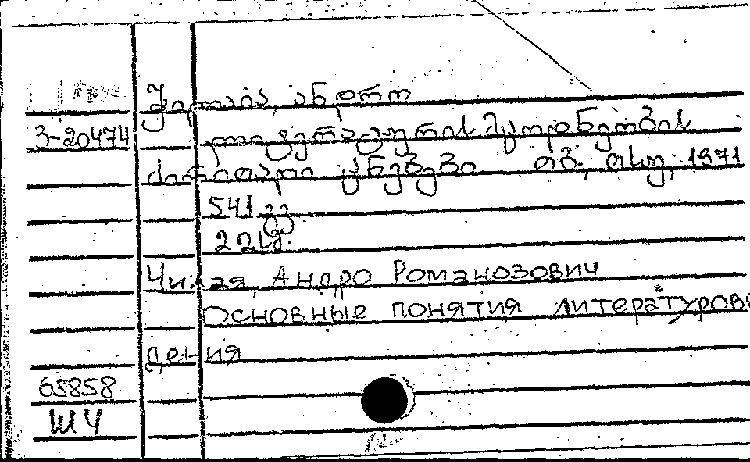 ჭილაია, ანდრო
3-20474 ლიტერატურის მცოდნეობის
ძირითადი ცნებები თბ., თსუ, 1971
541 გვ
22სმ.
Чилая, Андро Романозович
Основные понятия литературове
дения
65858
ШЧ